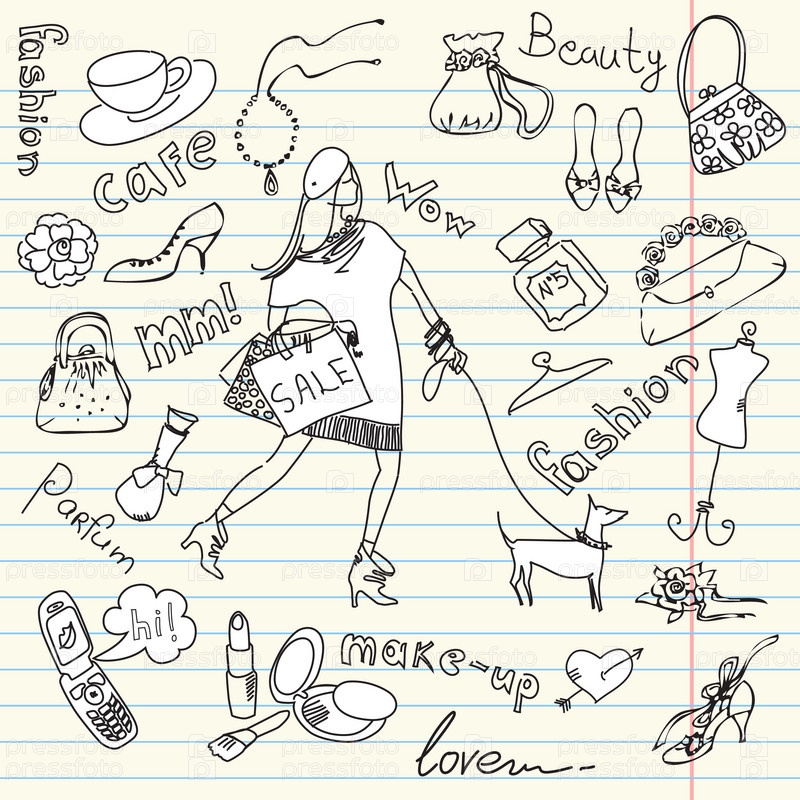 fashion
Beauty
cafe
Wow
N°5
mm!
SALE
fashion
Parfum
hi!
make-up
love
pressfoto